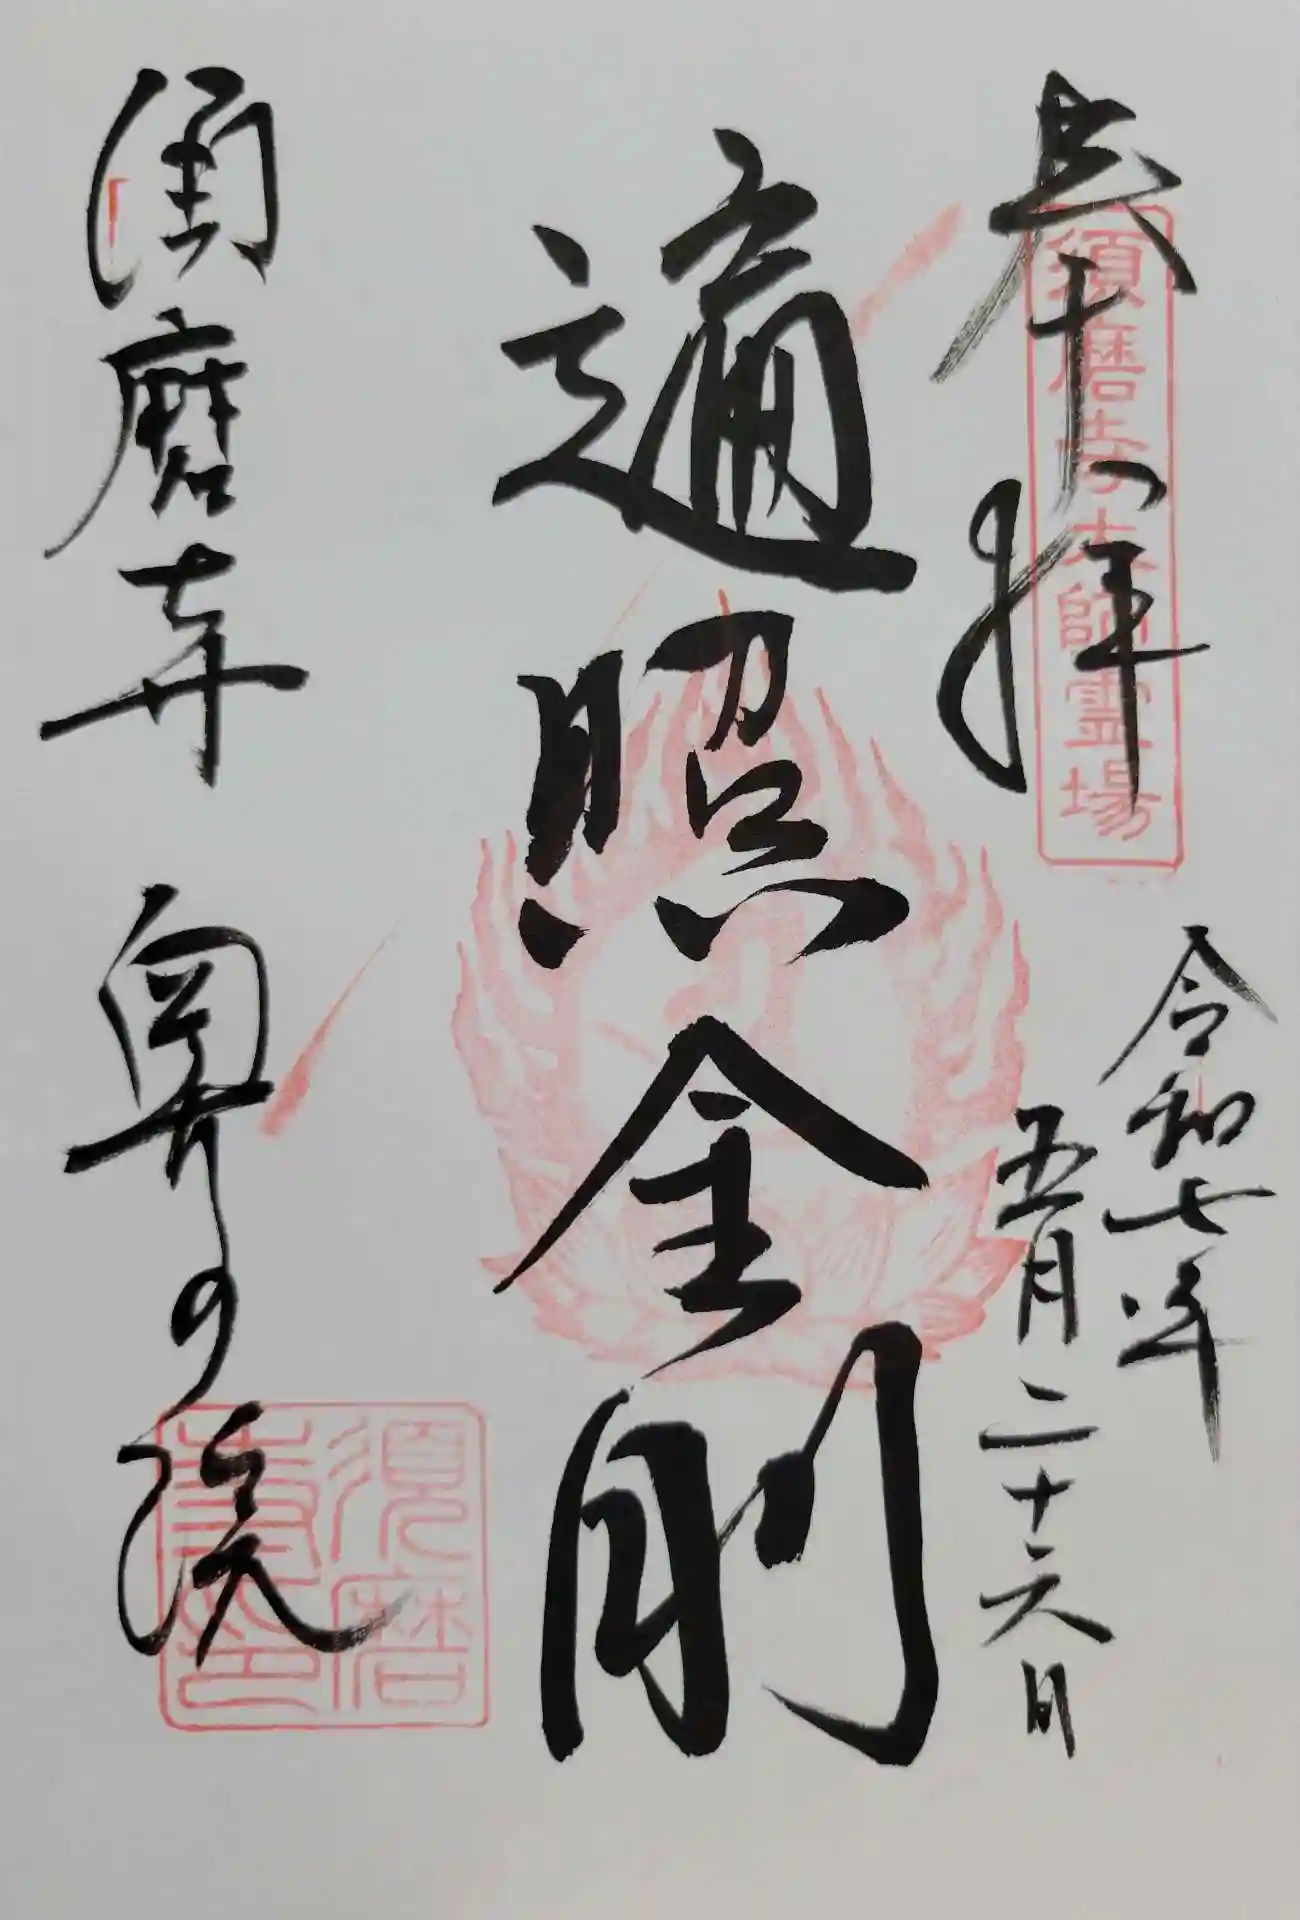 奉拝
須磨寺大師霊場
令和七年
五月二十六日
遍照金剛
須磨寺 奥の院
須磨
寺印